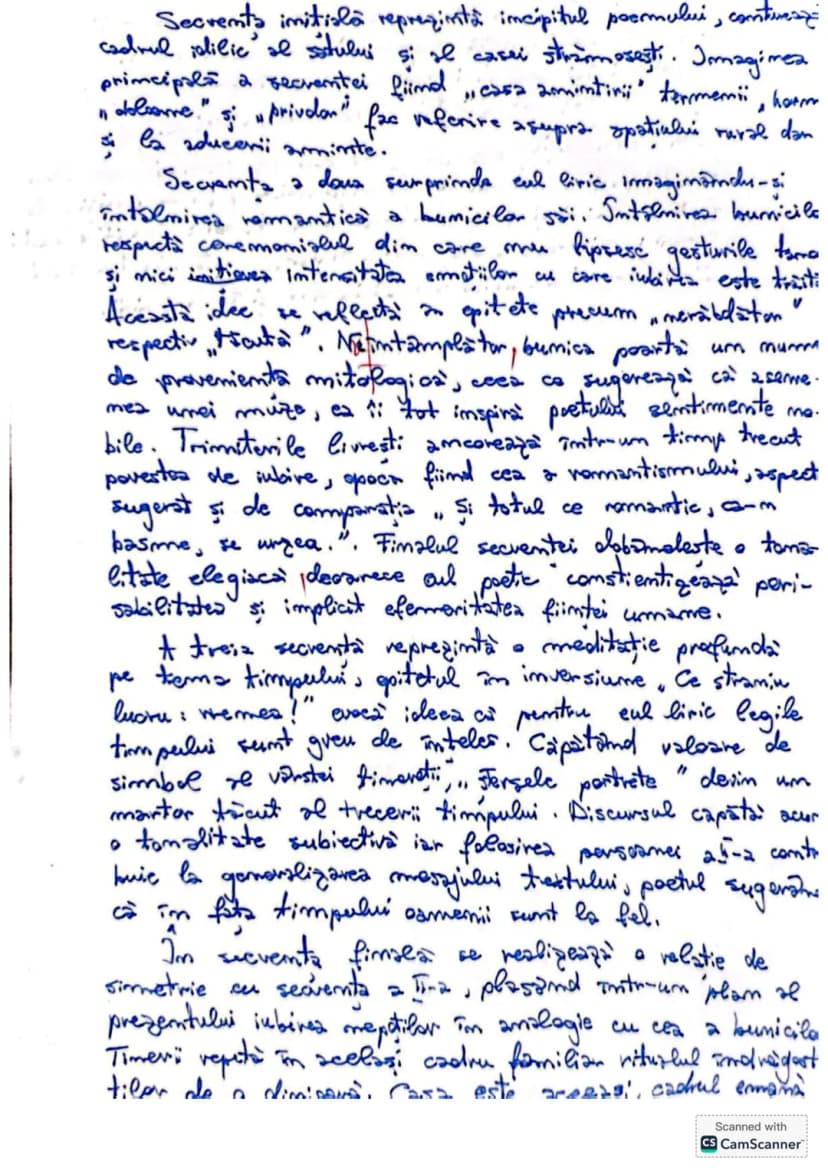 Secvența inițială reprezintă incipitul poemului, conturează
cadrul idilic al satului și al casei strămoșești. Imaginea
principală a secvenței fiind „casa amintirii" termenii, horn
„obloane" și „pridvor" fac referire asupra spațiului rural dar
și la aducerii aminte.
Secvența a doua surprinde eul liric imaginându-și
întâlnirea romantică a bunicilor săi. Întâlnirea bunicilo
respectă ceremonialul din care nu lipsesc gesturile
și nici intensitatea emoțiilor cu care iubirea este trăit
Această idee se reflectă în epitete precum „nerăbdător"
respectiv „tăcută". Neîntâmplător, bunica poartă un num
de proveniență mitologică, ceea ce sugerează că aseme-
nea unei muze, ea îi tot inspiră poetului sentimente no-
bile. Trimiterile livrești ancorează într-un timp trecut
povestea de iubire, epoca fiind cea a romantismului, aspect
sugerat și de comparația „Și totul ce romantic, ca-n
basme, se urzea.". Finalul secvenței dobândește o tona-
litate elegiacă, deoarece eul poetic conștientizează peri-
sabilitatea și implicit efemeritatea ființei umane.
A treia secvență reprezintă o meditație profundă
pe tema timpului, epitetul în inversiune „Ce straniu
lucru: vremea!" evocă ideea că pentru eul liric legile
timpului sunt greu de înțeles. Căpătând valoare de
simbol al vârstei tinereții, „Jersele portrete" devin un
martor tăcut al trecerii timpului. Discursul capătă acu
o tonalitate subiectivă iar folosirea persoanei a II-a contri
buie la generalizarea mesajului textului, poetul sugerân
că în fața timpului oamenii sunt la fel.
În secvența finală se realizează o relație de
simetrie cu secvența a II-a, plasând într-un plan al
prezentului iubirea nepoților în analogie cu cea a bunicilo
Tinerii repetă în același cadru familiar ritualul îndrăgost
ților de a Casa este aceeași, cadrul emană
Scanned with
CS CamScanner